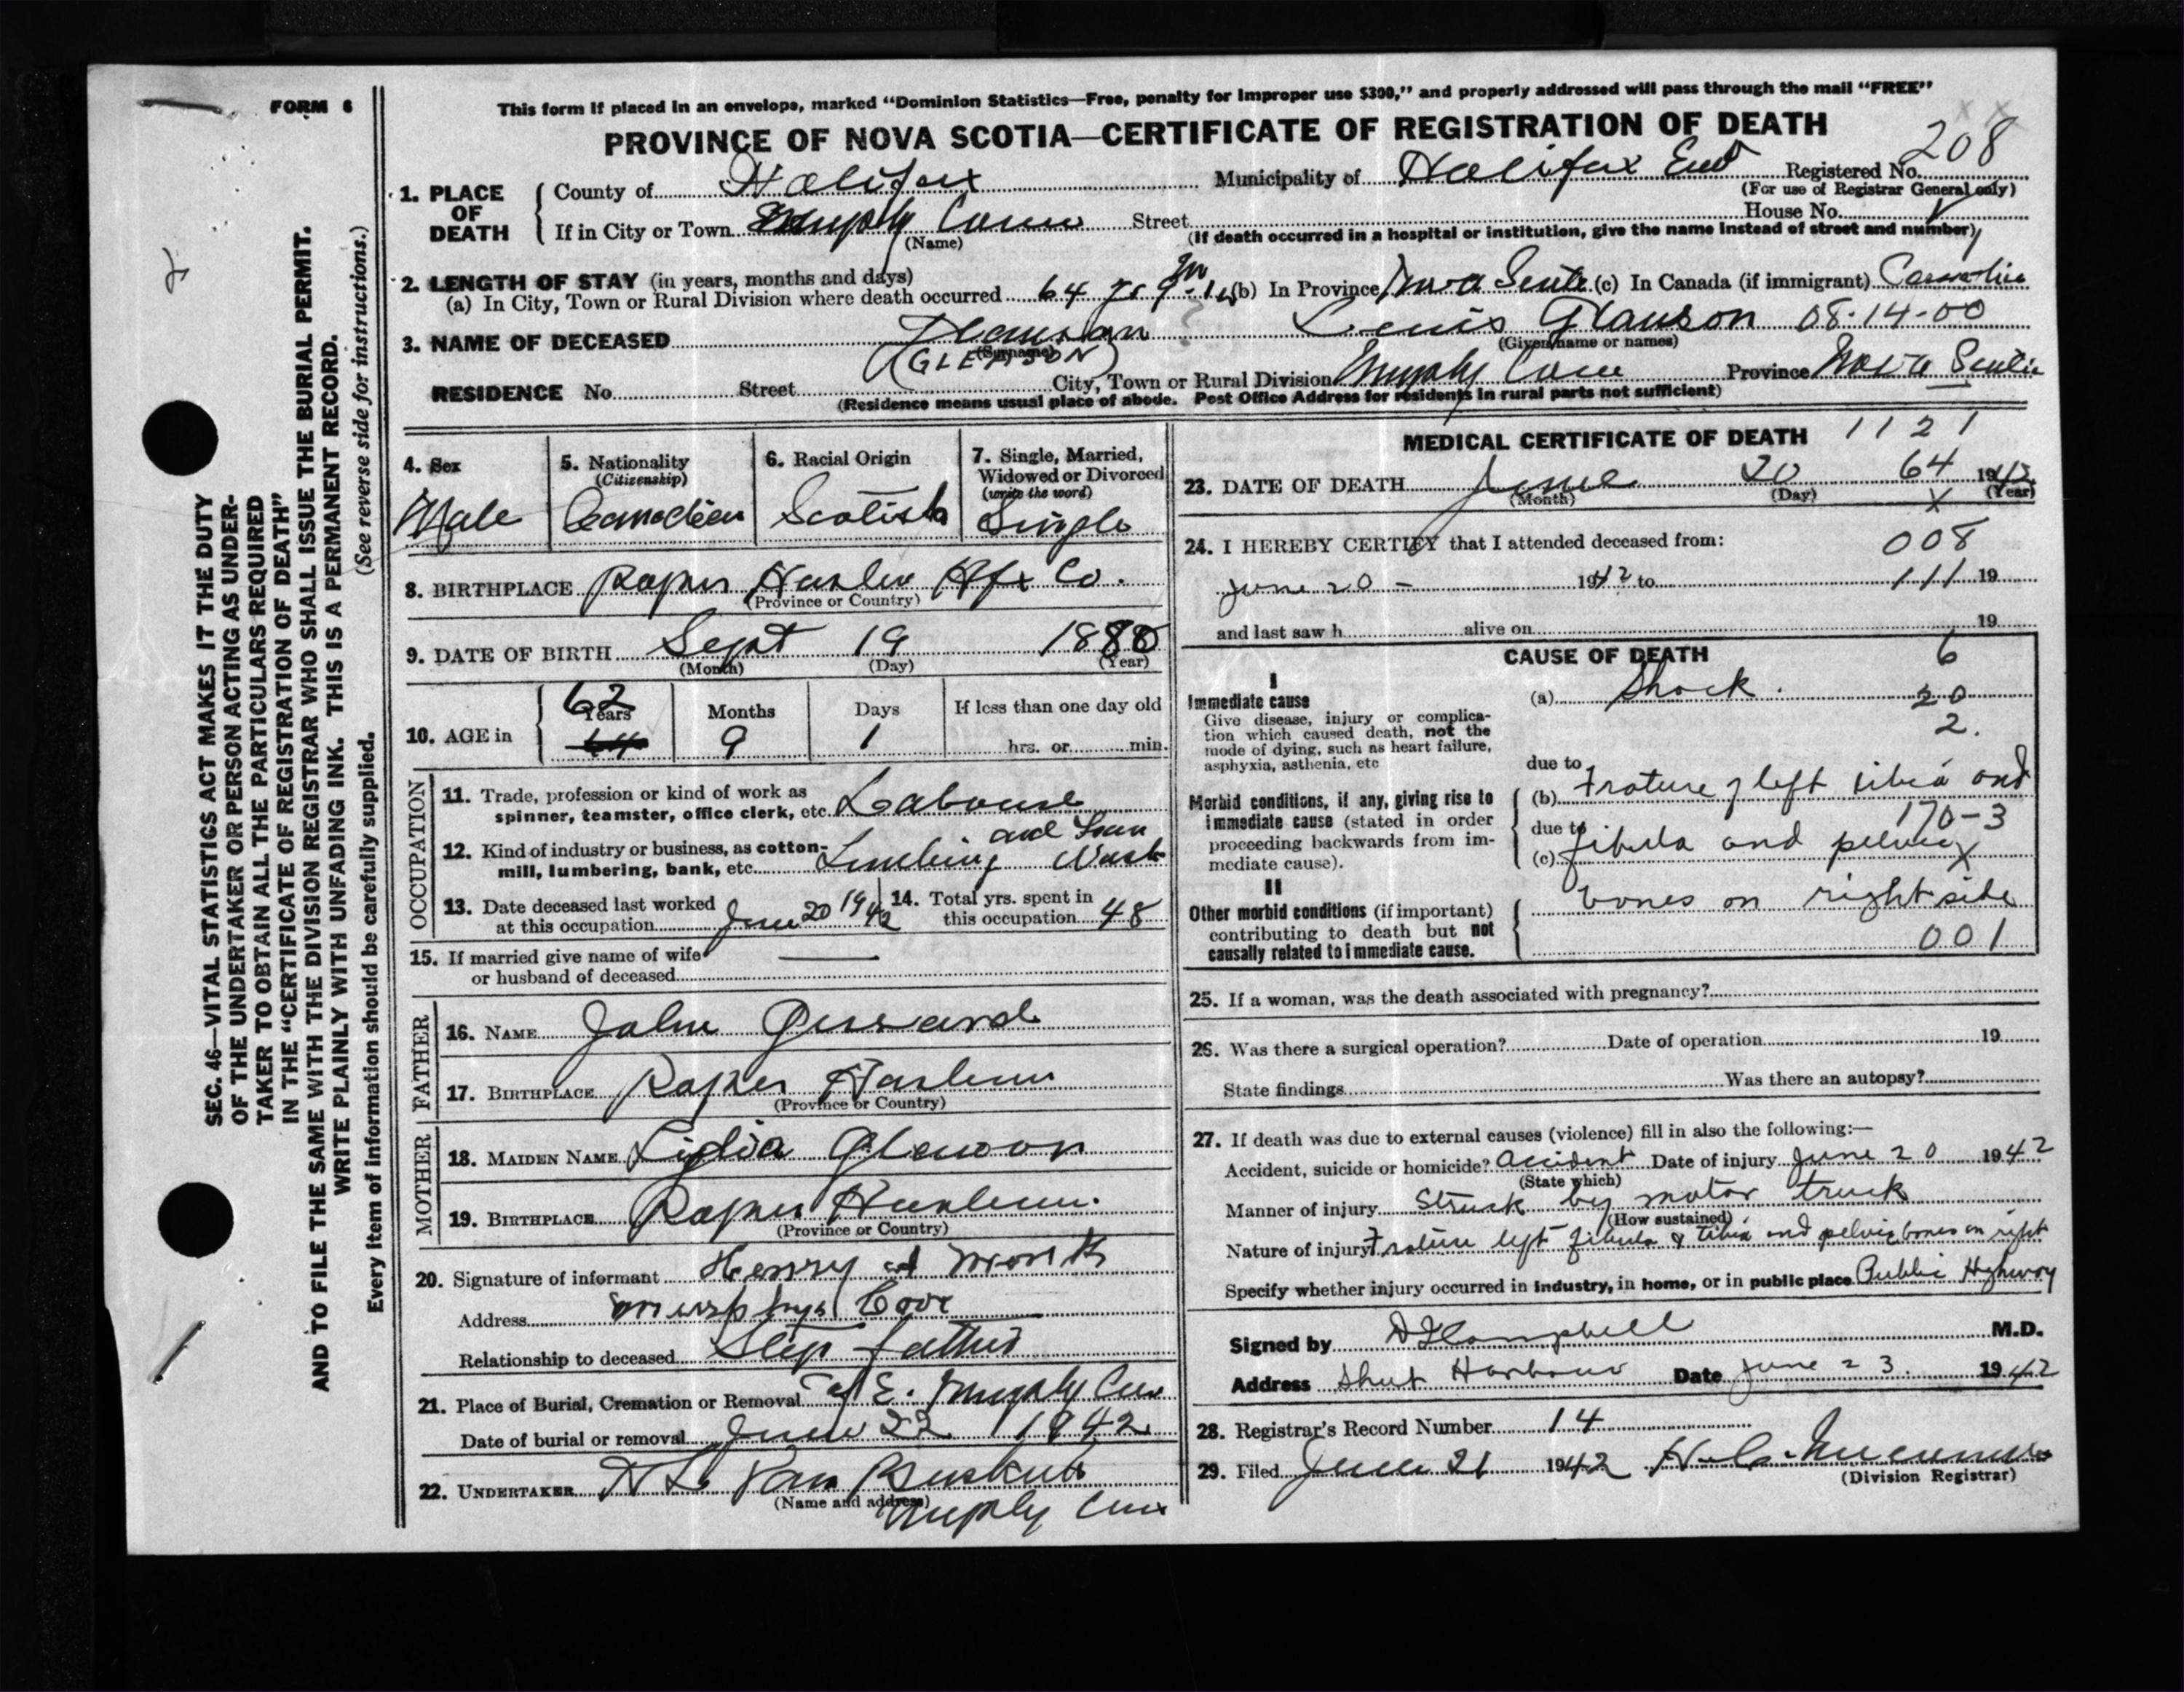 FORM 6
This form if placed in an envelope, marked “Dominion Statistics—Free, penalty for improper use $300,” and properly addressed will pass through the mail “FREE”
PROVINCE OF NOVA SCOTIA—CERTIFICATE OF REGISTRATION OF DEATH
208
1. PLACE OF DEATH
County of Halifax Municipality of Halifax East Registered No.
(For use of Registrar General only)
House No.
If in City or Town Murphy Cove Street
(Name) (If death occurred in a hospital or institution, give the name instead of street and number)
2. LENGTH OF STAY (in years, months and days)
(a) In City, Town or Rural Division where death occurred 64 yrs 9 m (b) In Province Nova Scotia (c) In Canada (if immigrant)
3. NAME OF DECEASED Louis Glawson 08-14-00
(Surname) (Given name or names)
(GLEASON)
RESIDENCE No. Street City, Town or Rural Division Murphy Cove Province Nova Scotia
(Residence means usual place of abode. Post Office Address for residents in rural parts not sufficient)
4. Sex
Male
5. Nationality
(Citizenship)
Canadian
6. Racial Origin
Scotish
7. Single, Married,
Widowed or Divorced
(write the word)
Single
8. BIRTHPLACE Popes Harbor Hfx Co.
(Province or Country)
9. DATE OF BIRTH Sept 19 1880
(Month) (Day) (Year)
10. AGE in
62
Years Months Days If less than one day old
64 9 1 hrs. or min.
OCCUPATION
11. Trade, profession or kind of work as
spinner, teamster, office clerk, etc. Labour
12. Kind of industry or business, as cotton-
mill, lumbering, bank, etc. Lumbering and Farm Work
13. Date deceased last worked
at this occupation June 20 1942
14. Total yrs. spent in
this occupation 48
15. If married give name of wife
or husband of deceased —
FATHER
16. NAME John Gerrard
17. BIRTHPLACE Popes Harbour
(Province or Country)
MOTHER
18. MAIDEN NAME Lidia Glawson
19. BIRTHPLACE Popes Harbour
(Province or Country)
20. Signature of informant Henry Monk
Address Murphys Cove
Relationship to deceased Step father
21. Place of Burial, Cremation or Removal C of E. Murphy Cove
Date of burial or removal June 22 1942
22. UNDERTAKER H L Van Buskirk
(Name and address)
Murphy Cove
MEDICAL CERTIFICATE OF DEATH 1121
64
23. DATE OF DEATH June 20 1942
(Month) (Day) (Year)
X
24. I HEREBY CERTIFY that I attended deceased from:
008
June 20 - 1942 to 111 19
and last saw h alive on 19
CAUSE OF DEATH
6
I
Immediate cause
Give disease, injury or complica-
tion which caused death, not the
mode of dying, such as heart failure,
asphyxia, asthenia, etc
(a) Shock.
20
2.
due to
Morbid conditions, if any, giving rise to
immediate cause (stated in order
proceeding backwards from im-
mediate cause).
(b) Frature of left tibia and
170-3
due to
(c) fibula and pelvic
X
II
Other morbid conditions (if important)
contributing to death but not
causally related to immediate cause.
bones on right side
001
25. If a woman, was the death associated with pregnancy?
26. Was there a surgical operation? Date of operation 19
State findings Was there an autopsy?
27. If death was due to external causes (violence) fill in also the following:—
Accident, suicide or homicide? Accident Date of injury June 20 1942
(State which)
Manner of injury Struck by motor truck
(How sustained)
Nature of injury Frature left fibula & tibia and pelvic bones on right
Specify whether injury occurred in industry, in home, or in public place Public Highway
Signed by D F Campbell M.D.
Address Sheet Harbour Date June 23. 1942
28. Registrar's Record Number 14
29. Filed June 21 1942
(Division Registrar)
SEC. 46—VITAL STATISTICS ACT MAKES IT THE DUTY
OF THE UNDERTAKER OR PERSON ACTING AS UNDER-
TAKER TO OBTAIN ALL THE PARTICULARS REQUIRED
IN THE “CERTIFICATE OF REGISTRATION OF DEATH”
AND TO FILE THE SAME WITH THE DIVISION REGISTRAR WHO SHALL ISSUE THE BURIAL PERMIT.
WRITE PLAINLY WITH UNFADING INK. THIS IS A PERMANENT RECORD.
Every item of information should be carefully supplied. (See reverse side for instructions.)